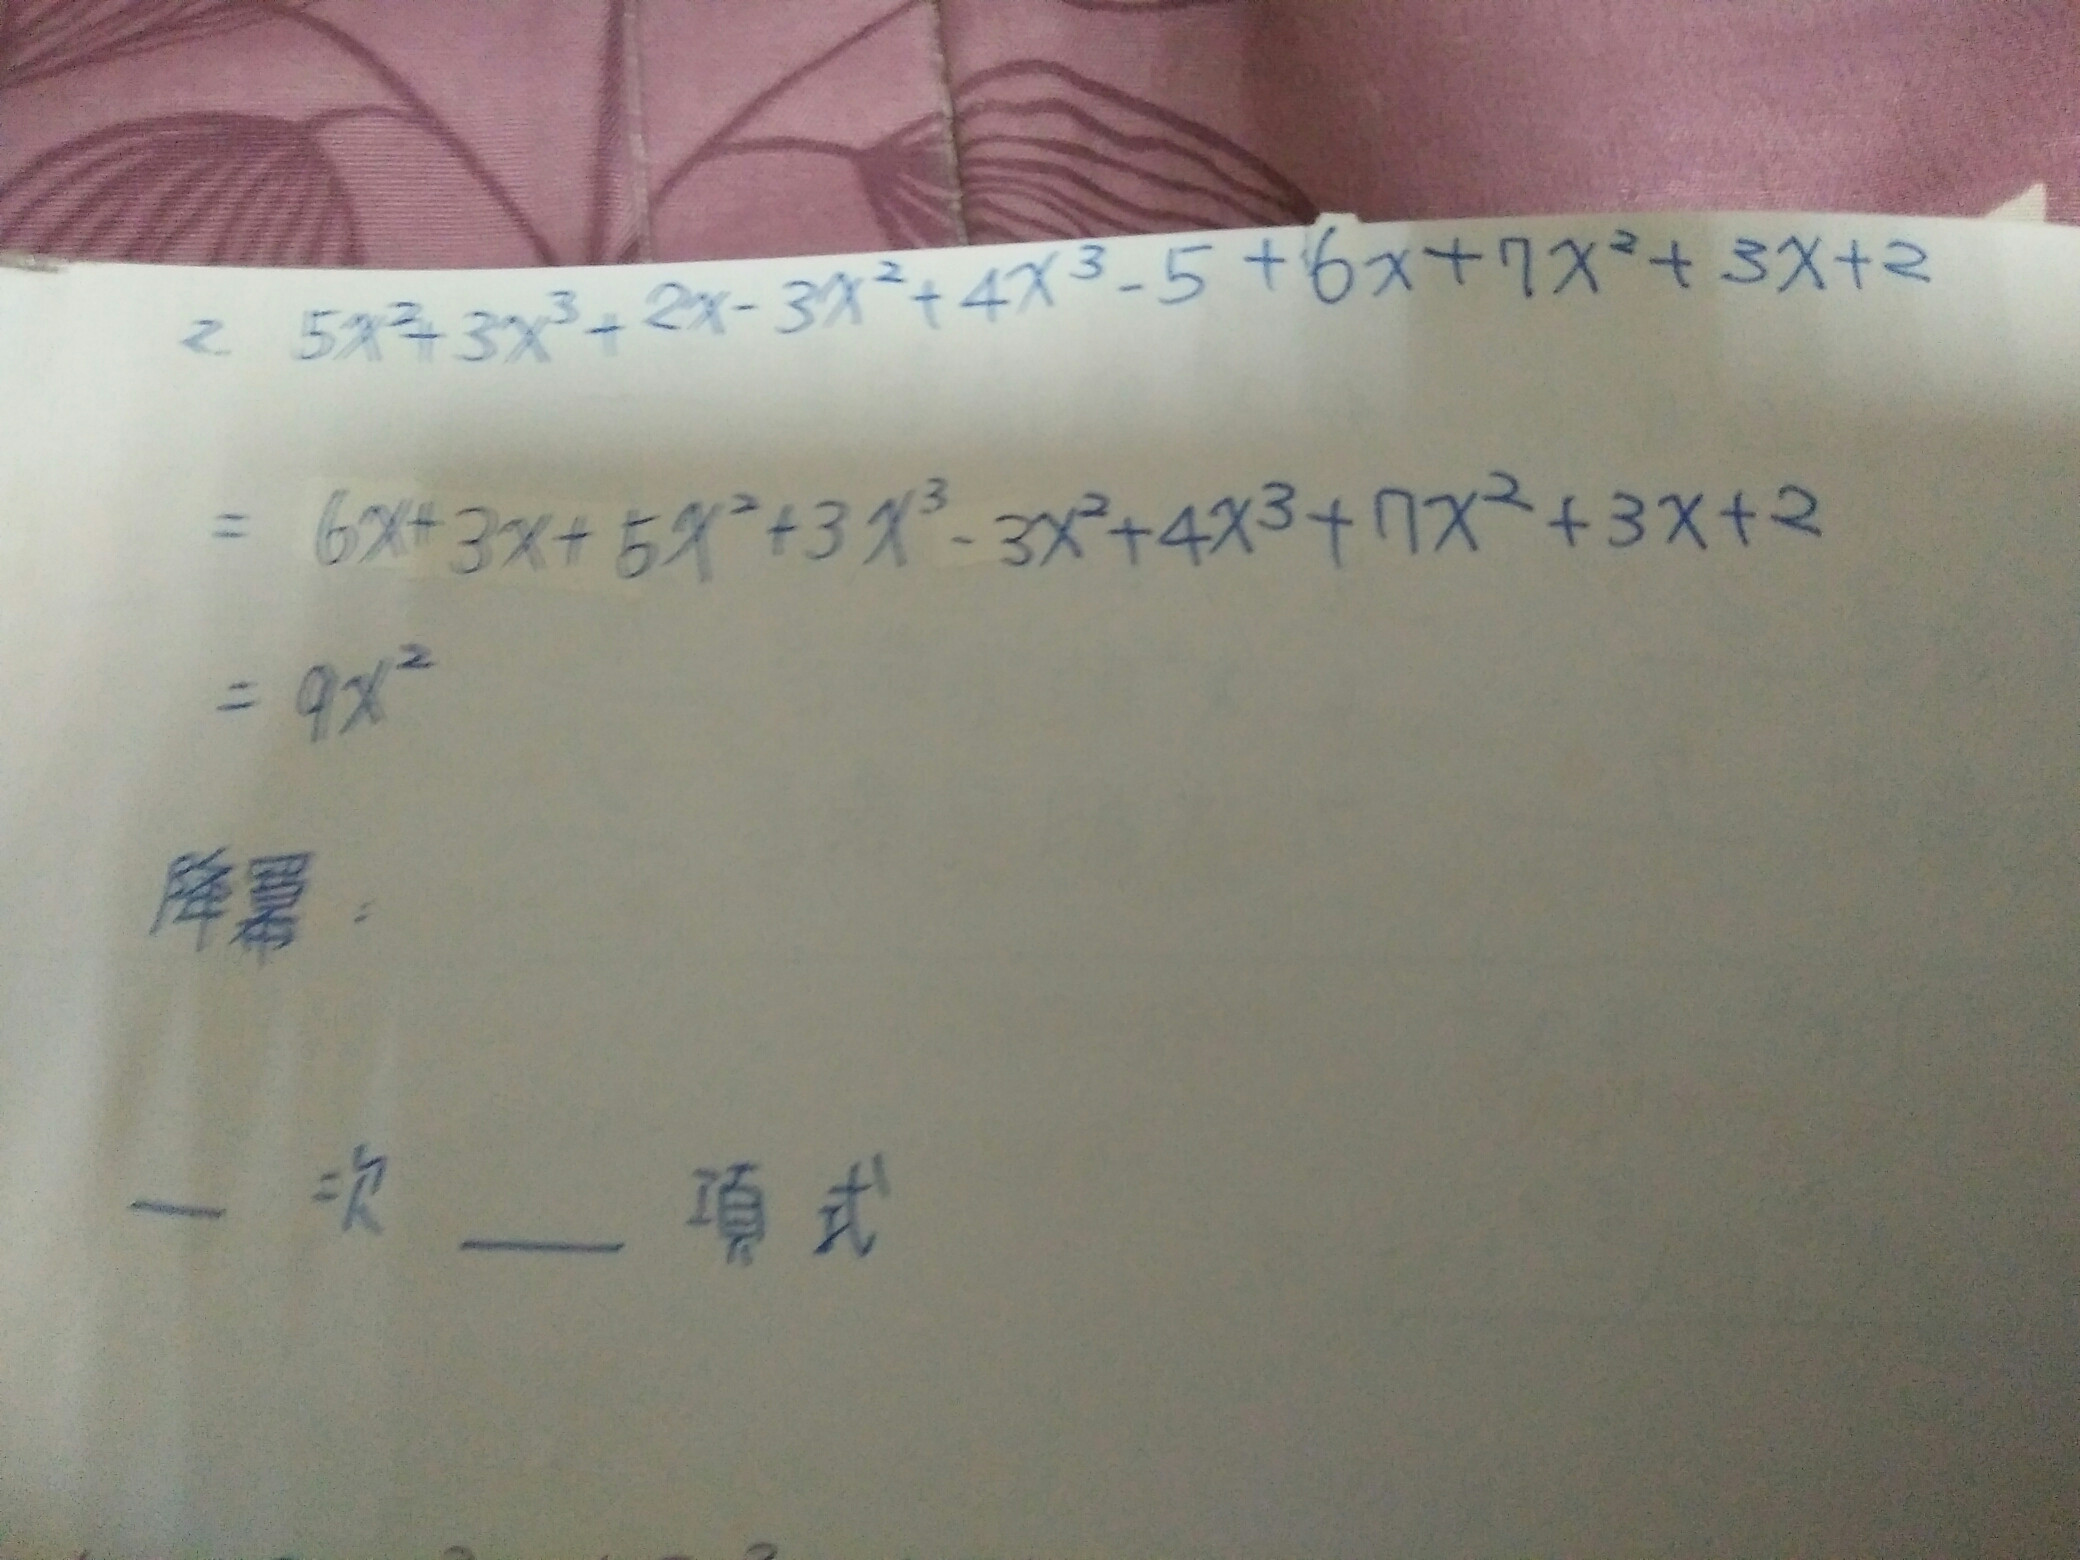 2. 5x²+3x³+2x-3x²+4x³-5+6x+7x²+3x+2
= 6x+3x+5x²+3x³-3x²+4x³+7x²+3x+2
= 9x²
降幂:
次 項式